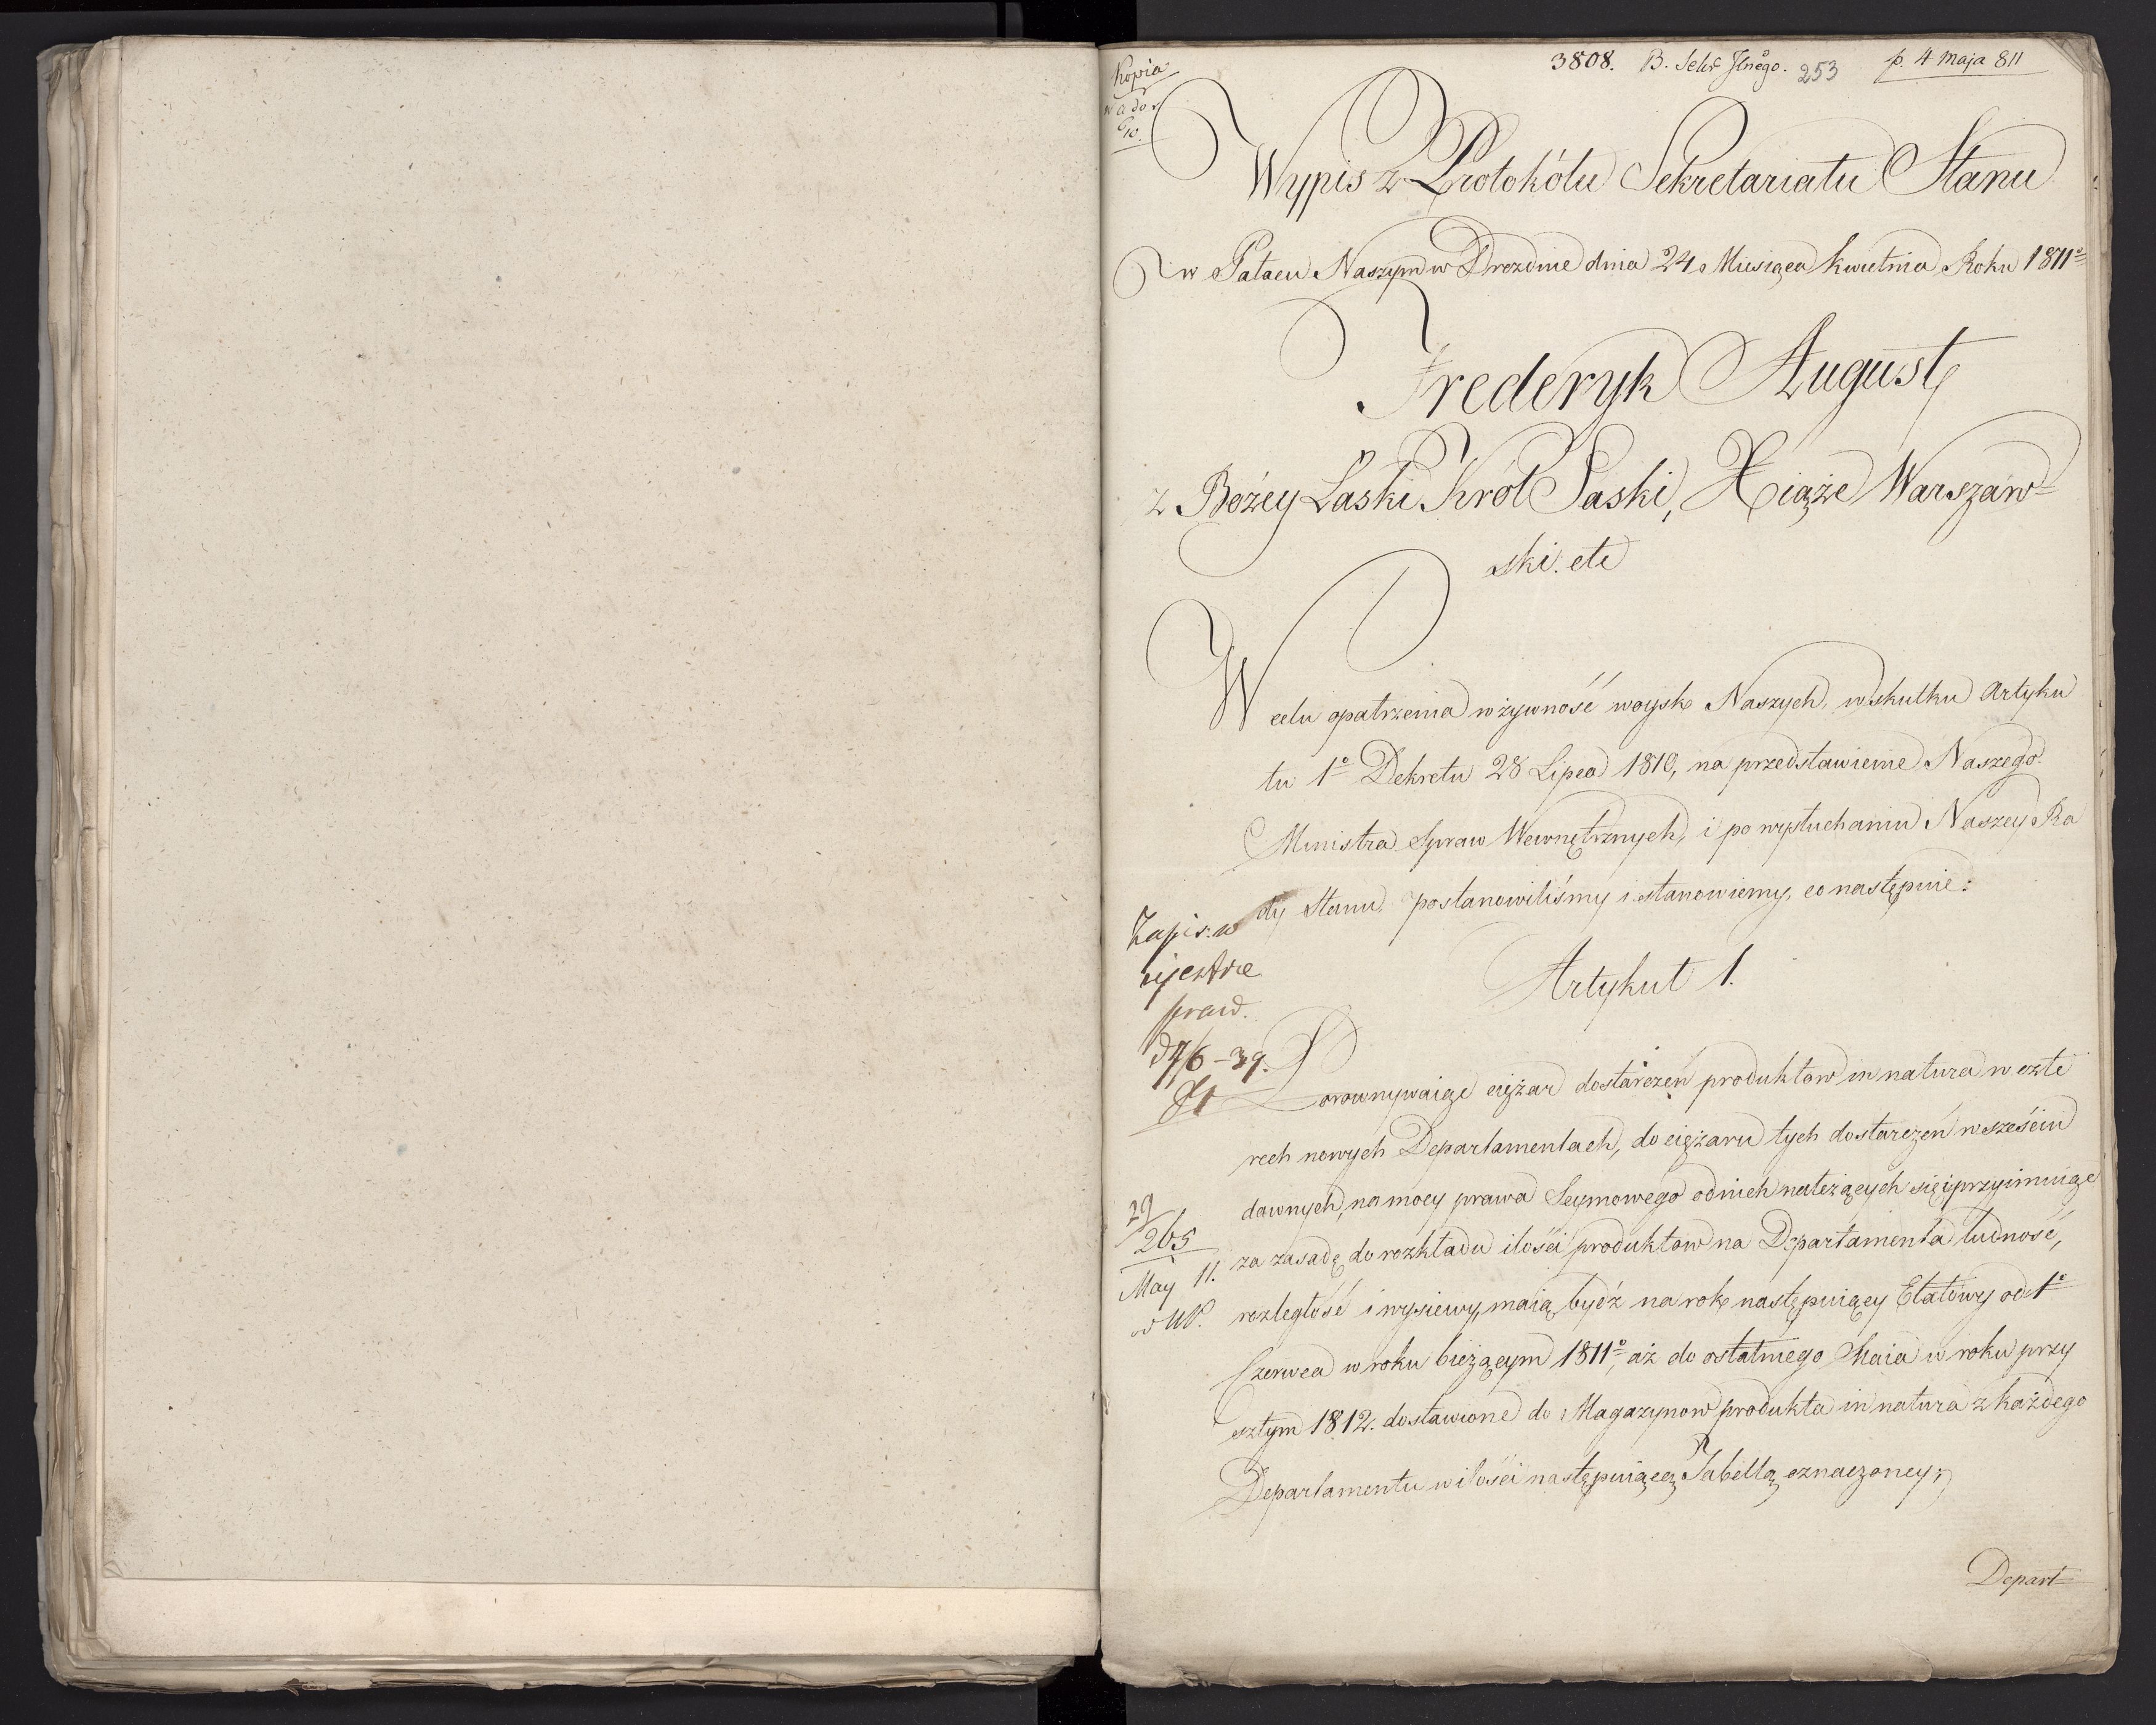 Kopia
3808. B. Sekr Jlnego. 253 p. 4 Maja 811
Wypis z Protokółu Sekretariatu Stanu
w Pałacu Naszym w Dreznie dnia 24 Miesiąca Kwietnia Roku 1811º
Frederyk August
z Bożey Łaski Król Saski, Xiąże Warszaw=
ski. etc
W celu opatrzenia w żywność woysk Naszych, w skutku Artyku
łu 1º Dekretu 28 Lipca 1810, na przedstawienie Naszego
Ministra Spraw Wewnętrznych, i po wysłuchaniu Naszey Ra
dy Stanu, postanowiliśmy i stanowiemy, co następuie:
Zapis: w
rejestrze
praw.
d 7/6 - 39.
Artykuł 1.
Porownywaiąc ciężar dostarczeń produktow in natura w czte
rech nowych Departamentach, do ciężaru tych dostarczeń w sześciu
dawnych, na mocy prawa Seymowego od nich należących się i przyimuiąc
29
265
May 11.
za zasadę do rozkładu ilości produktow na Departamenta ludność,
rozległość i wysiewy, maią bydź na rok następuiący Etatowy od 1º
Czerwca w roku bieżącym 1811º, aż do ostatniego Maia w roku przy
szłym 1812. dostawione do Magazynow produkta in natura z każdego
Departamentu w ilości następuiącą Tabellą oznaczoney;
Depart=